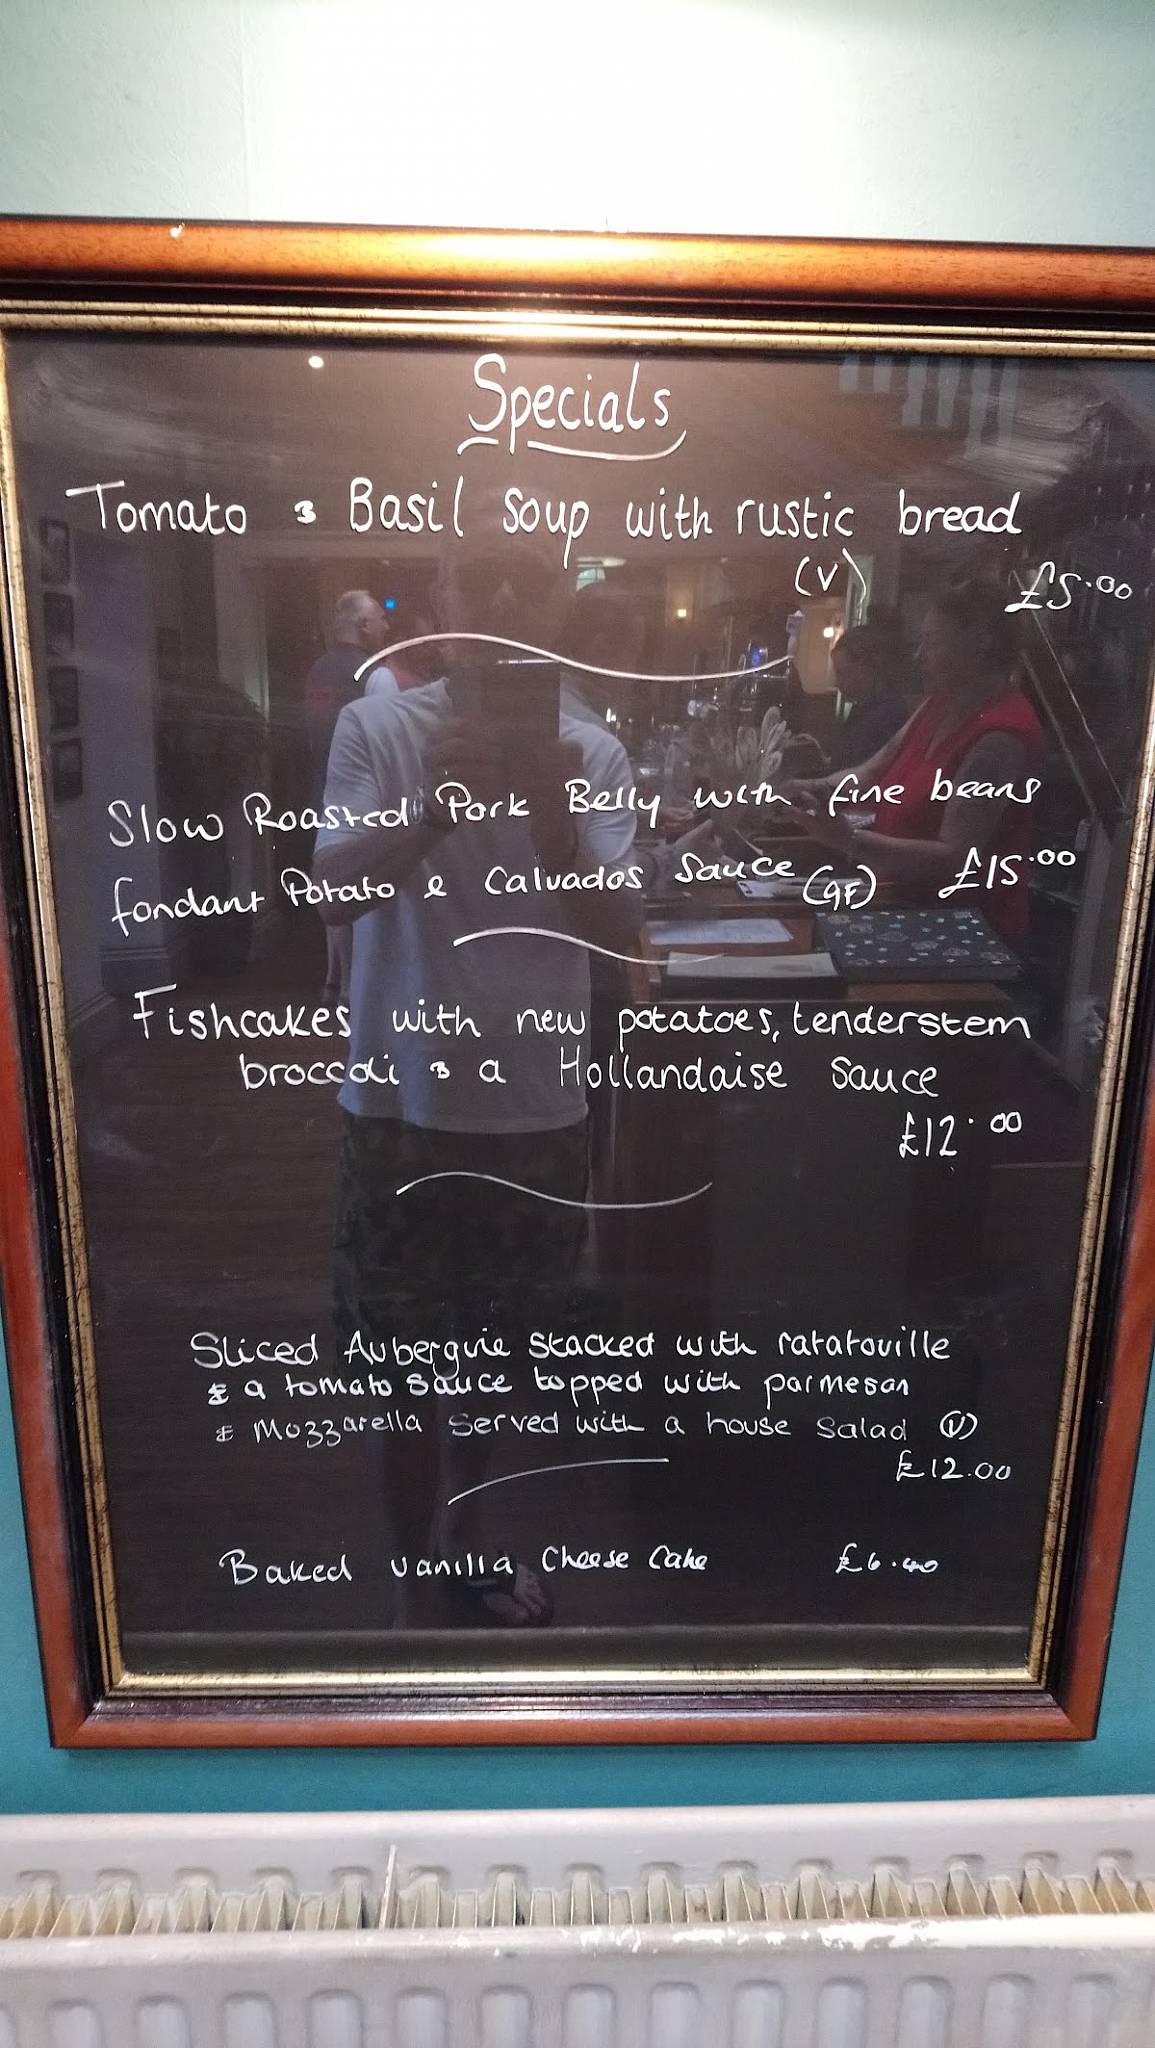 Specials
Tomato & Basil soup with rustic bread
(V) £5.00
Slow Roasted Pork Belly with fine beans
fondant Potato & Calvados Sauce (GF) £15.00
Fishcakes with new potatoes, tenderstem
broccoli & a Hollandaise sauce
£12.00
Sliced Aubergvie stacked with ratatouille
& a tomato sauce topped with parmesan
& Mozzarella served with a house salad (V)
£12.00
Baked vanilla Cheese Cake